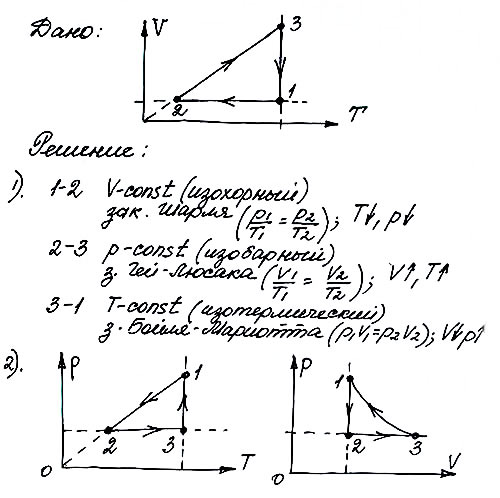 Дано:
V
3
2
1
T
Решение:
1). 1-2 V-const (изохорный)
зак. Шарля (p₁/T₁ = p₂/T₂); T↓, p↓
2-3 p-const (изобарный)
з. Гей-Люсака (V₁/T₁ = V₂/T₂); V↑, T↑
3-1 T-const (изотермический)
з. Бойля-Мариотта (p₁V₁=p₂V₂); V↓p↑
2).
P
1
2
3
0
T
P
1
2
3
0
V